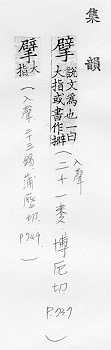 集韻
擘
說文撝也一曰
大指或書作擗
(入聲
二十一麥 博厄切
P.747
擘
大指
(入聲二十三錫 蒲歷切)
P.749